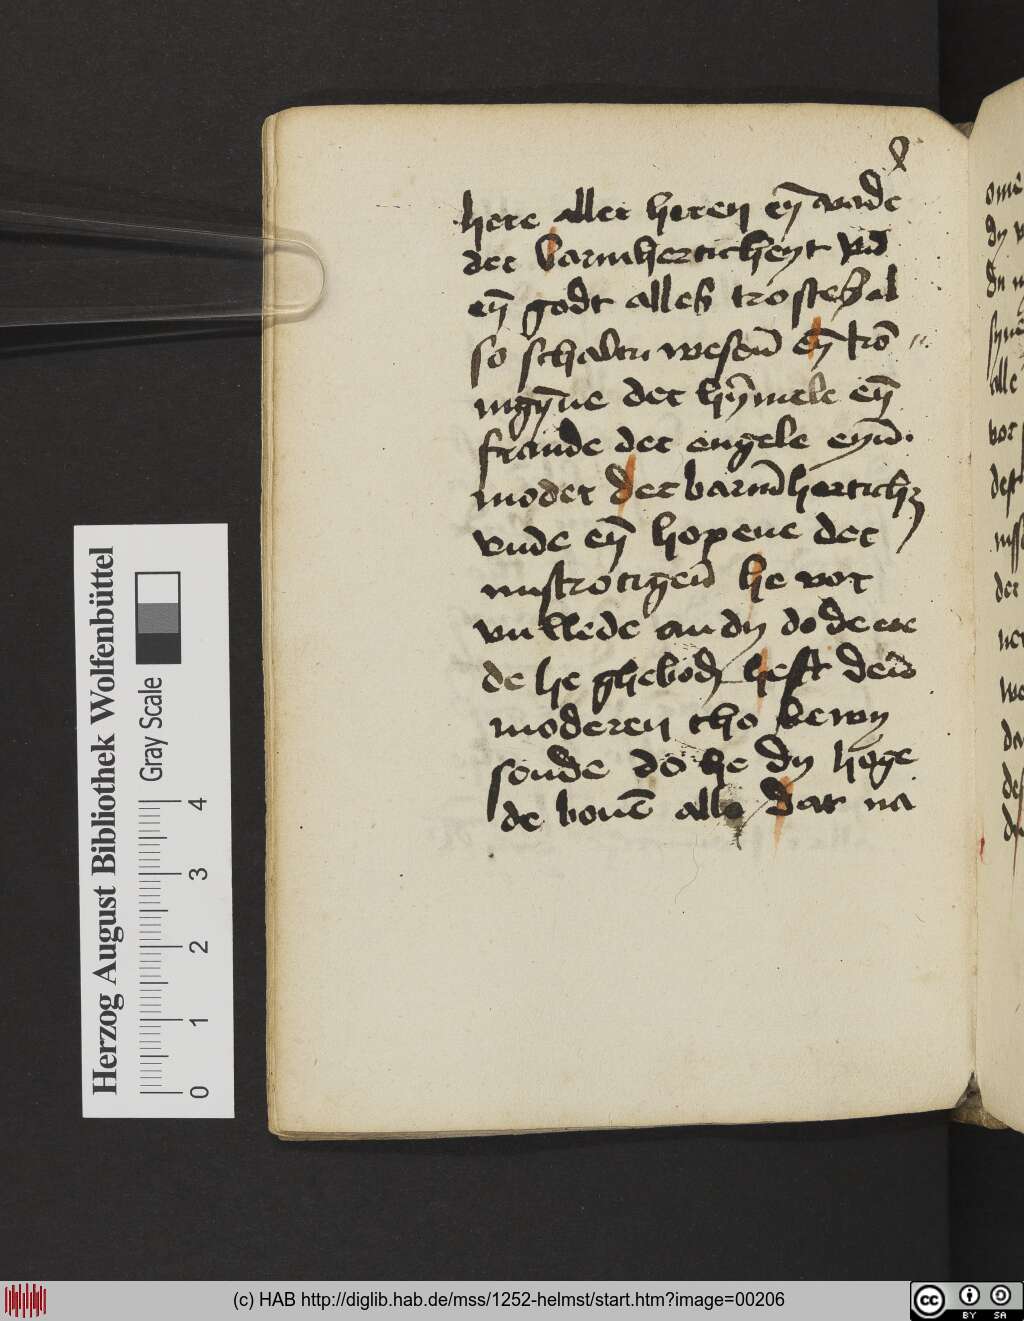 here aller heren eȳ vade
der barmherticheyt vn̄d
eȳ godt alles trostes al
so schaltu wesen̄ eȳ trō
ingȳne der hȳmele eȳ
fraude der engele eyn̄
moder der barm̄hertich
vnde eȳ hopene der
mistrotigen̄ he vor
vullede an dy do de ee
de he ghebodē heft den̄
moderen tho bewy
sende do he dy hoge
de bouē alle dat na
Herzog August Bibliothek Wolfenbüttel
Gray Scale
0 1 2 3 4
(c) HAB http://diglib.hab.de/mss/1252-helmst/start.htm?image=00206
cc BY SA